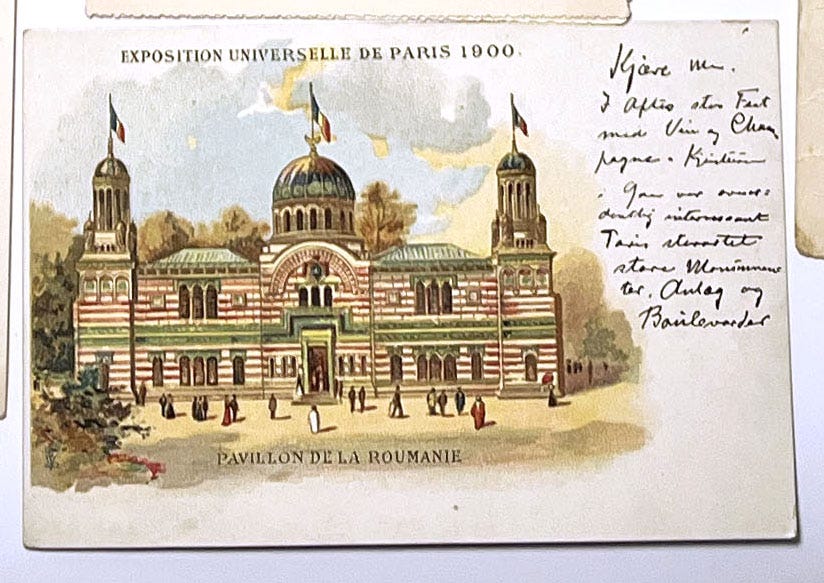 EXPOSITION UNIVERSELLE DE PARIS 1900.
Kjære
I Aften stor Fest
med Vin og Cham
pagne.
i Gaar var overor-
dentlig interessant
Paris storartet
store Monumen
ter, Anlæg og
Boulevarder
PAVILLON DE LA ROUMANIE